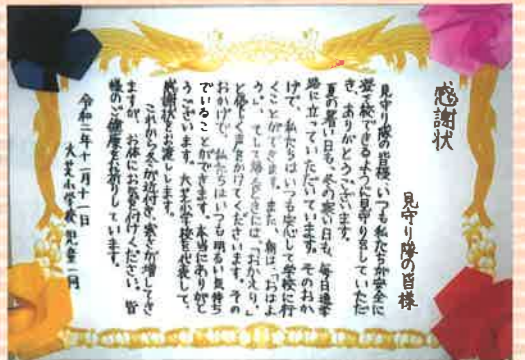 感謝状
見守り隊の皆様
見守り隊の皆様、いつも私たちが安全に
登下校できるように見守りをしていただ
き、ありがとうございます。
夏の暑い日も、冬の寒い日も、毎日通学
路に立っていただいています。そのおか
げで、私たちはいつも安心して学校に行
くことができます。また、朝は、「おはよ
う」、そして帰るときには、「おかえり。」
と優しく声をかけてくださいます。その
おかげで、私たちはいつも明るい気持ち
でいることができます。本当にありがと
うございます。大芝小学校を代表して、
感謝状をお渡しします。
これから冬が近付き、寒さが増してき
ますが、お体にお気を付けください。皆
様のご健康をお祈りしています。
令和二年十一月十一日
大芝小学校 児童一同